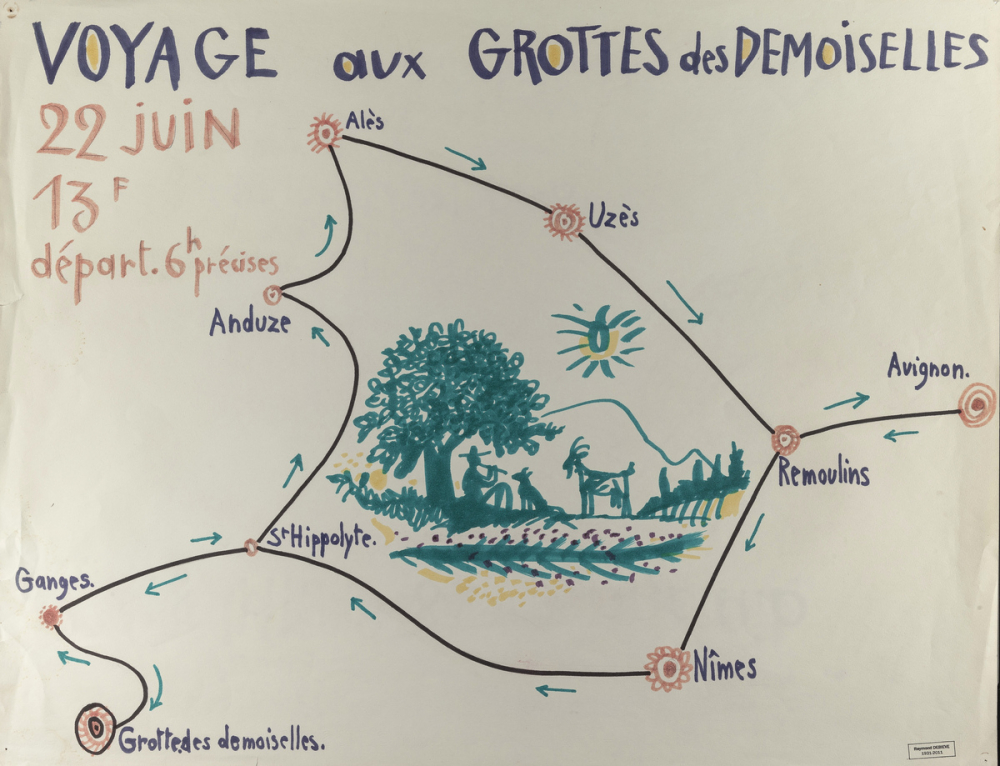 VOYAGE aux GROTTES des DEMOISELLES
22 JUIN
13F
départ. 6h précises
Alès
Uzès
Anduze
Avignon.
Remoulins
St Hippolyte.
Ganges.
Nîmes
Grotte des demoiselles.
Raymond DEBIÈVE
1931-2011